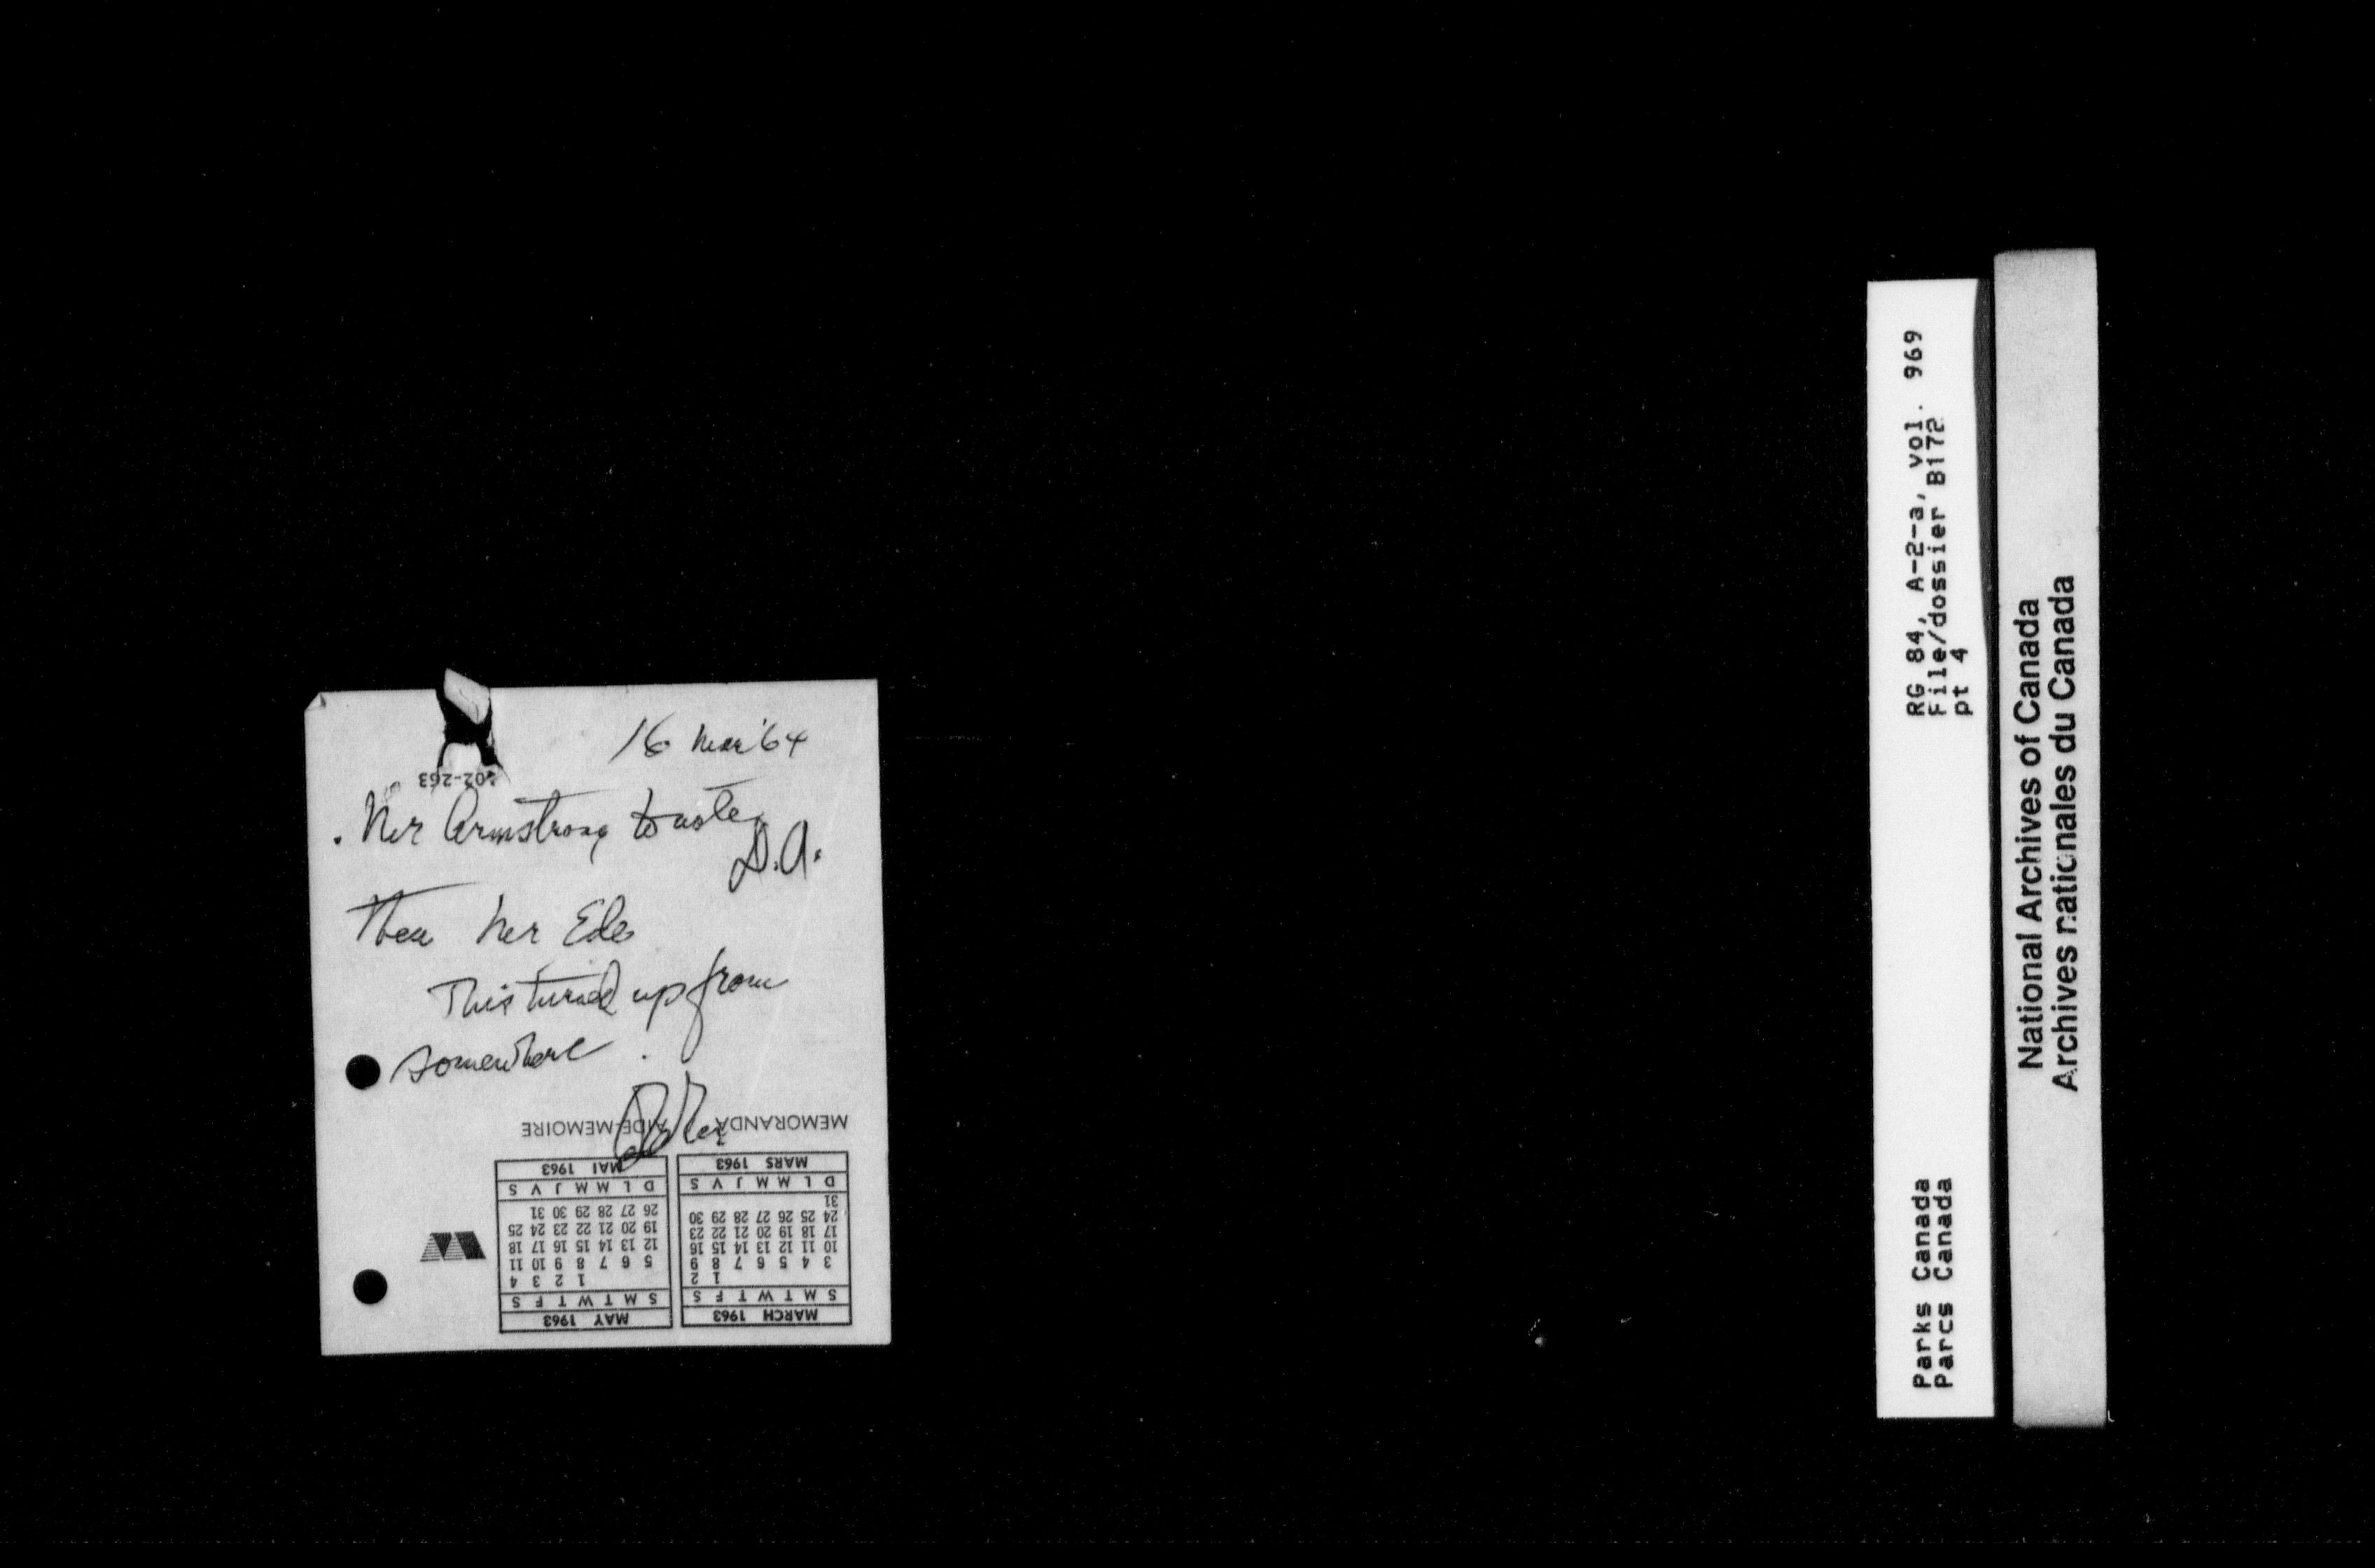 16 Mar '64
Mr Armstrong to note
D.A.
Then Mr Ede
This turned up from
somewhere.
MEMORANDA AIDE-MEMOIRE
MARS 1963
D L M M J V S
31
24 25 26 27 28 29 30
17 18 19 20 21 22 23
10 11 12 13 14 15 16
3 4 5 6 7 8 9
1 2
S M T W T F S
MARCH 1963
MAI 1963
D L M M J V S
26 27 28 29 30 31
19 20 21 22 23 24 25
12 13 14 15 16 17 18
5 6 7 8 9 10 11
1 2 3 4
S M T W T F S
MAY 1963
RG 84, A-2-a, vol. 969
File/dossier B172
pt 4
Parks Canada
Parcs Canada
National Archives of Canada
Archives nationales du Canada